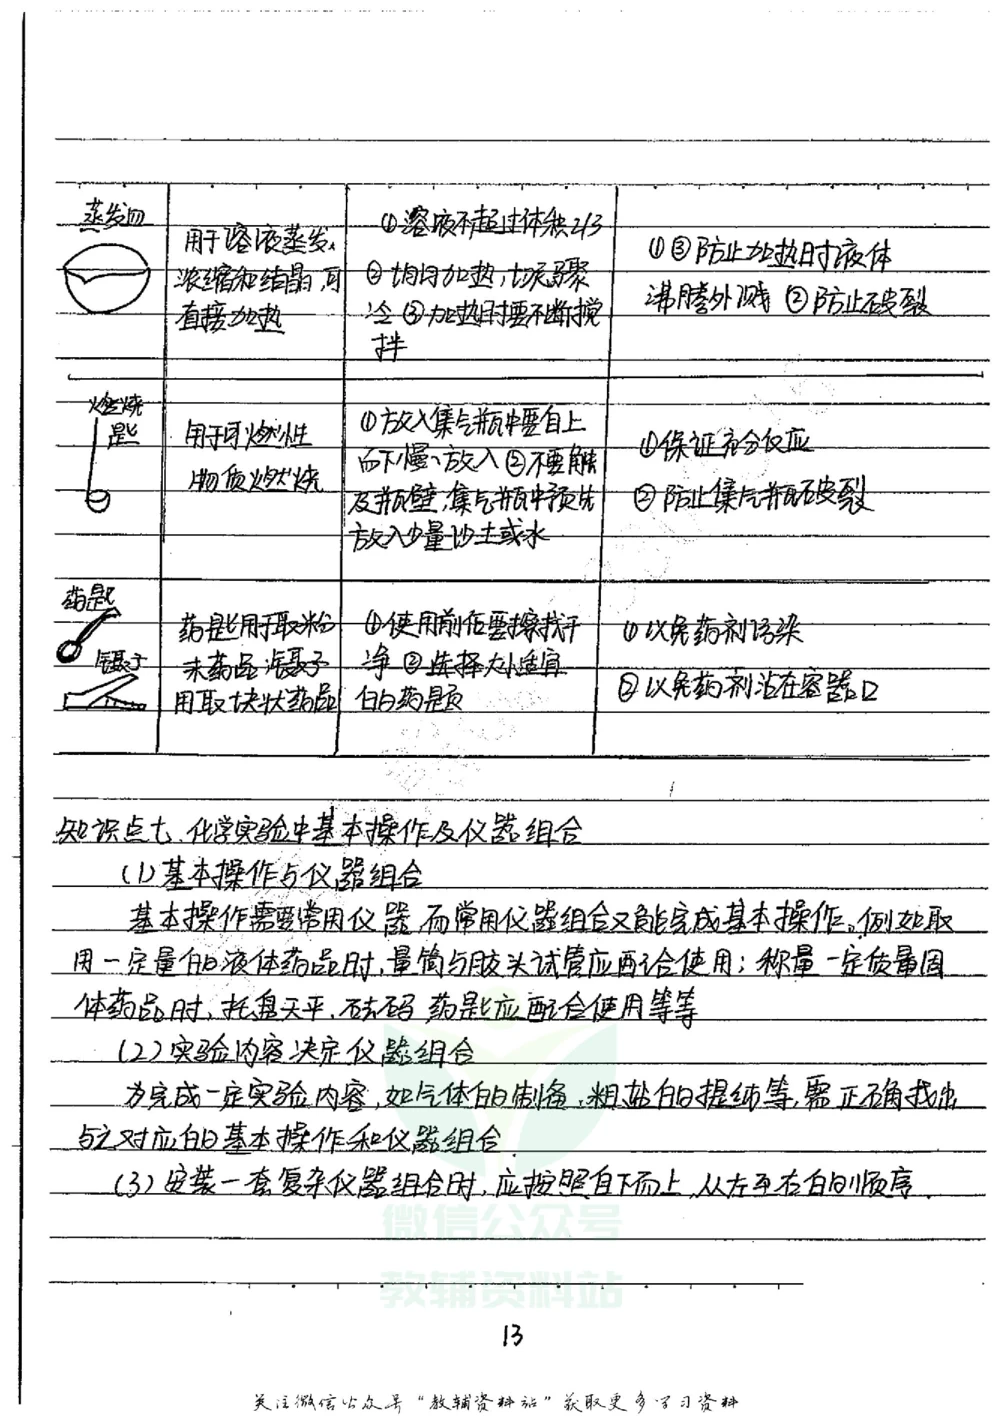 蒸发皿
用于溶液蒸发、
浓缩和结晶,可
直接加热
①溶液不超过体积2/3
②均匀加热,切忌骤
冷③加热时要不断搅
拌
①③防止加热时液体
沸腾外溅 ②防止破裂
燃烧
匙
用于可燃性
物质燃烧
①放入集气瓶中要自上
而下慢慢放入②不要触
及瓶壁,集气瓶中预先
放入少量沙土或水
①保证充分反应
②防止集气瓶破裂
药匙
镊子
药匙用于取粉
末药品 镊子
用取块状药品
①使用前后要擦拭干
净 ②选择大小适宜
的药匙
①以免药剂污染
②以免药剂沾在容器口
知识点七、化学实验中基本操作及仪器组合
(1)基本操作与仪器组合
基本操作需要常用仪器,而常用仪器组合又能完成基本操作。例如取
用一定量的液体药品时,量筒与胶头试管应配合使用;称量一定质量固
体药品时,托盘天平、砝码、药匙应配合使用等等
(2)实验内容决定仪器组合
为完成一定实验内容,如气体的制备、粗盐的提纯等,需正确找出
与之对应的基本操作和仪器组合
(3)安装一套复杂仪器组合时,应按照自下而上,从左至右的顺序.
微信公众号
教辅资料站
13
关注微信公众号“教辅资料站”获取更多学习资料